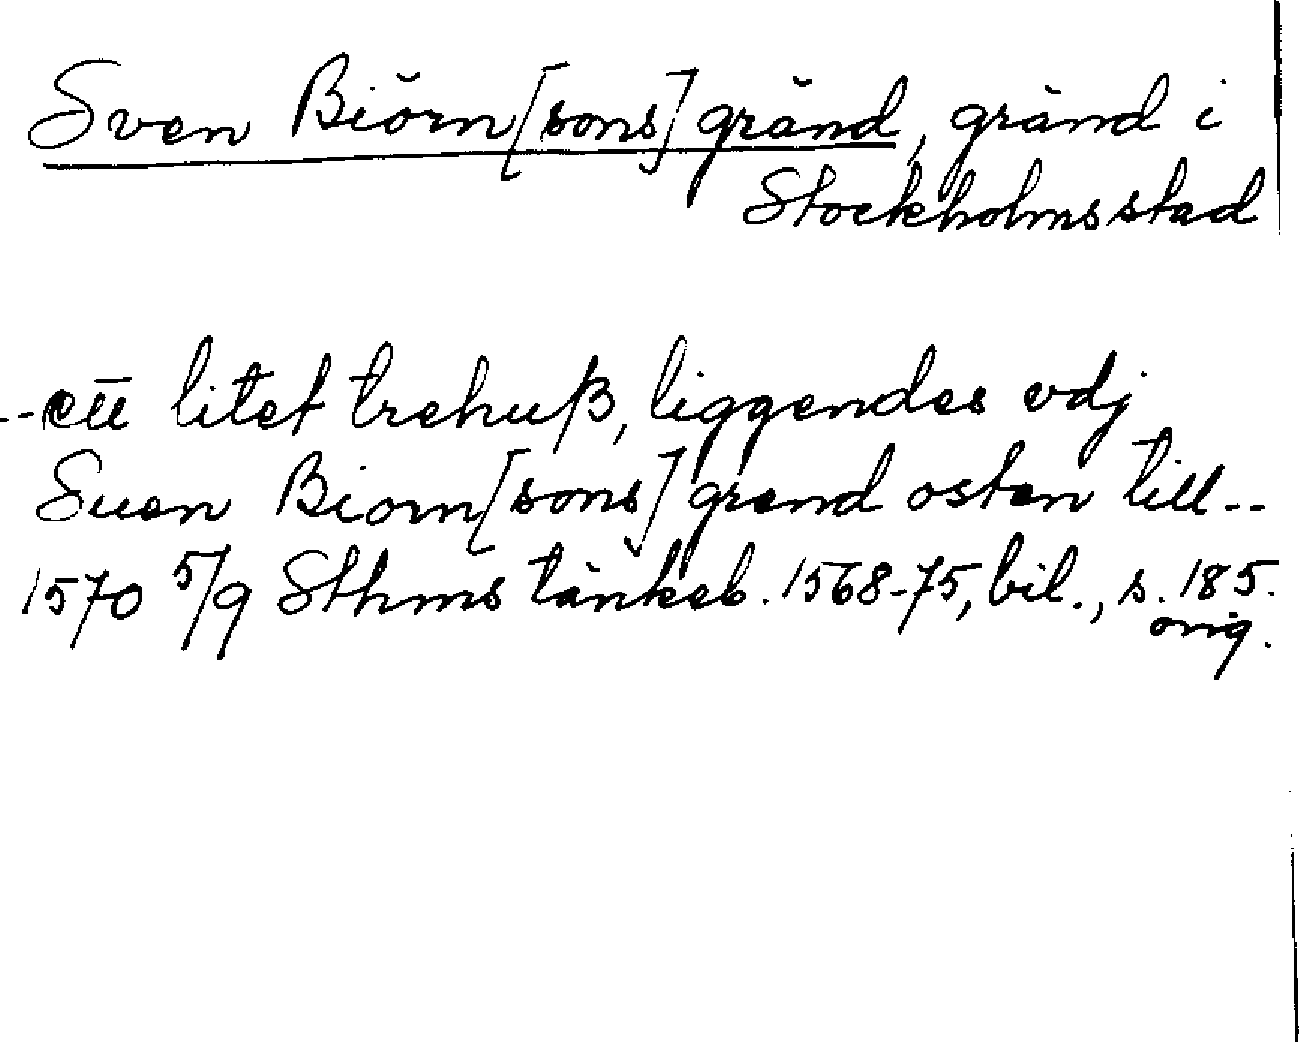 Sven Biörn[sons] gränd, gränd i
Stockholms stad
-- ett litet trehuß, liggendes vdj
Suen Biorn[sons] grend osten till --
1570 5/9 Sthms tänkeb. 1568-75, bil., s. 185.
orig.